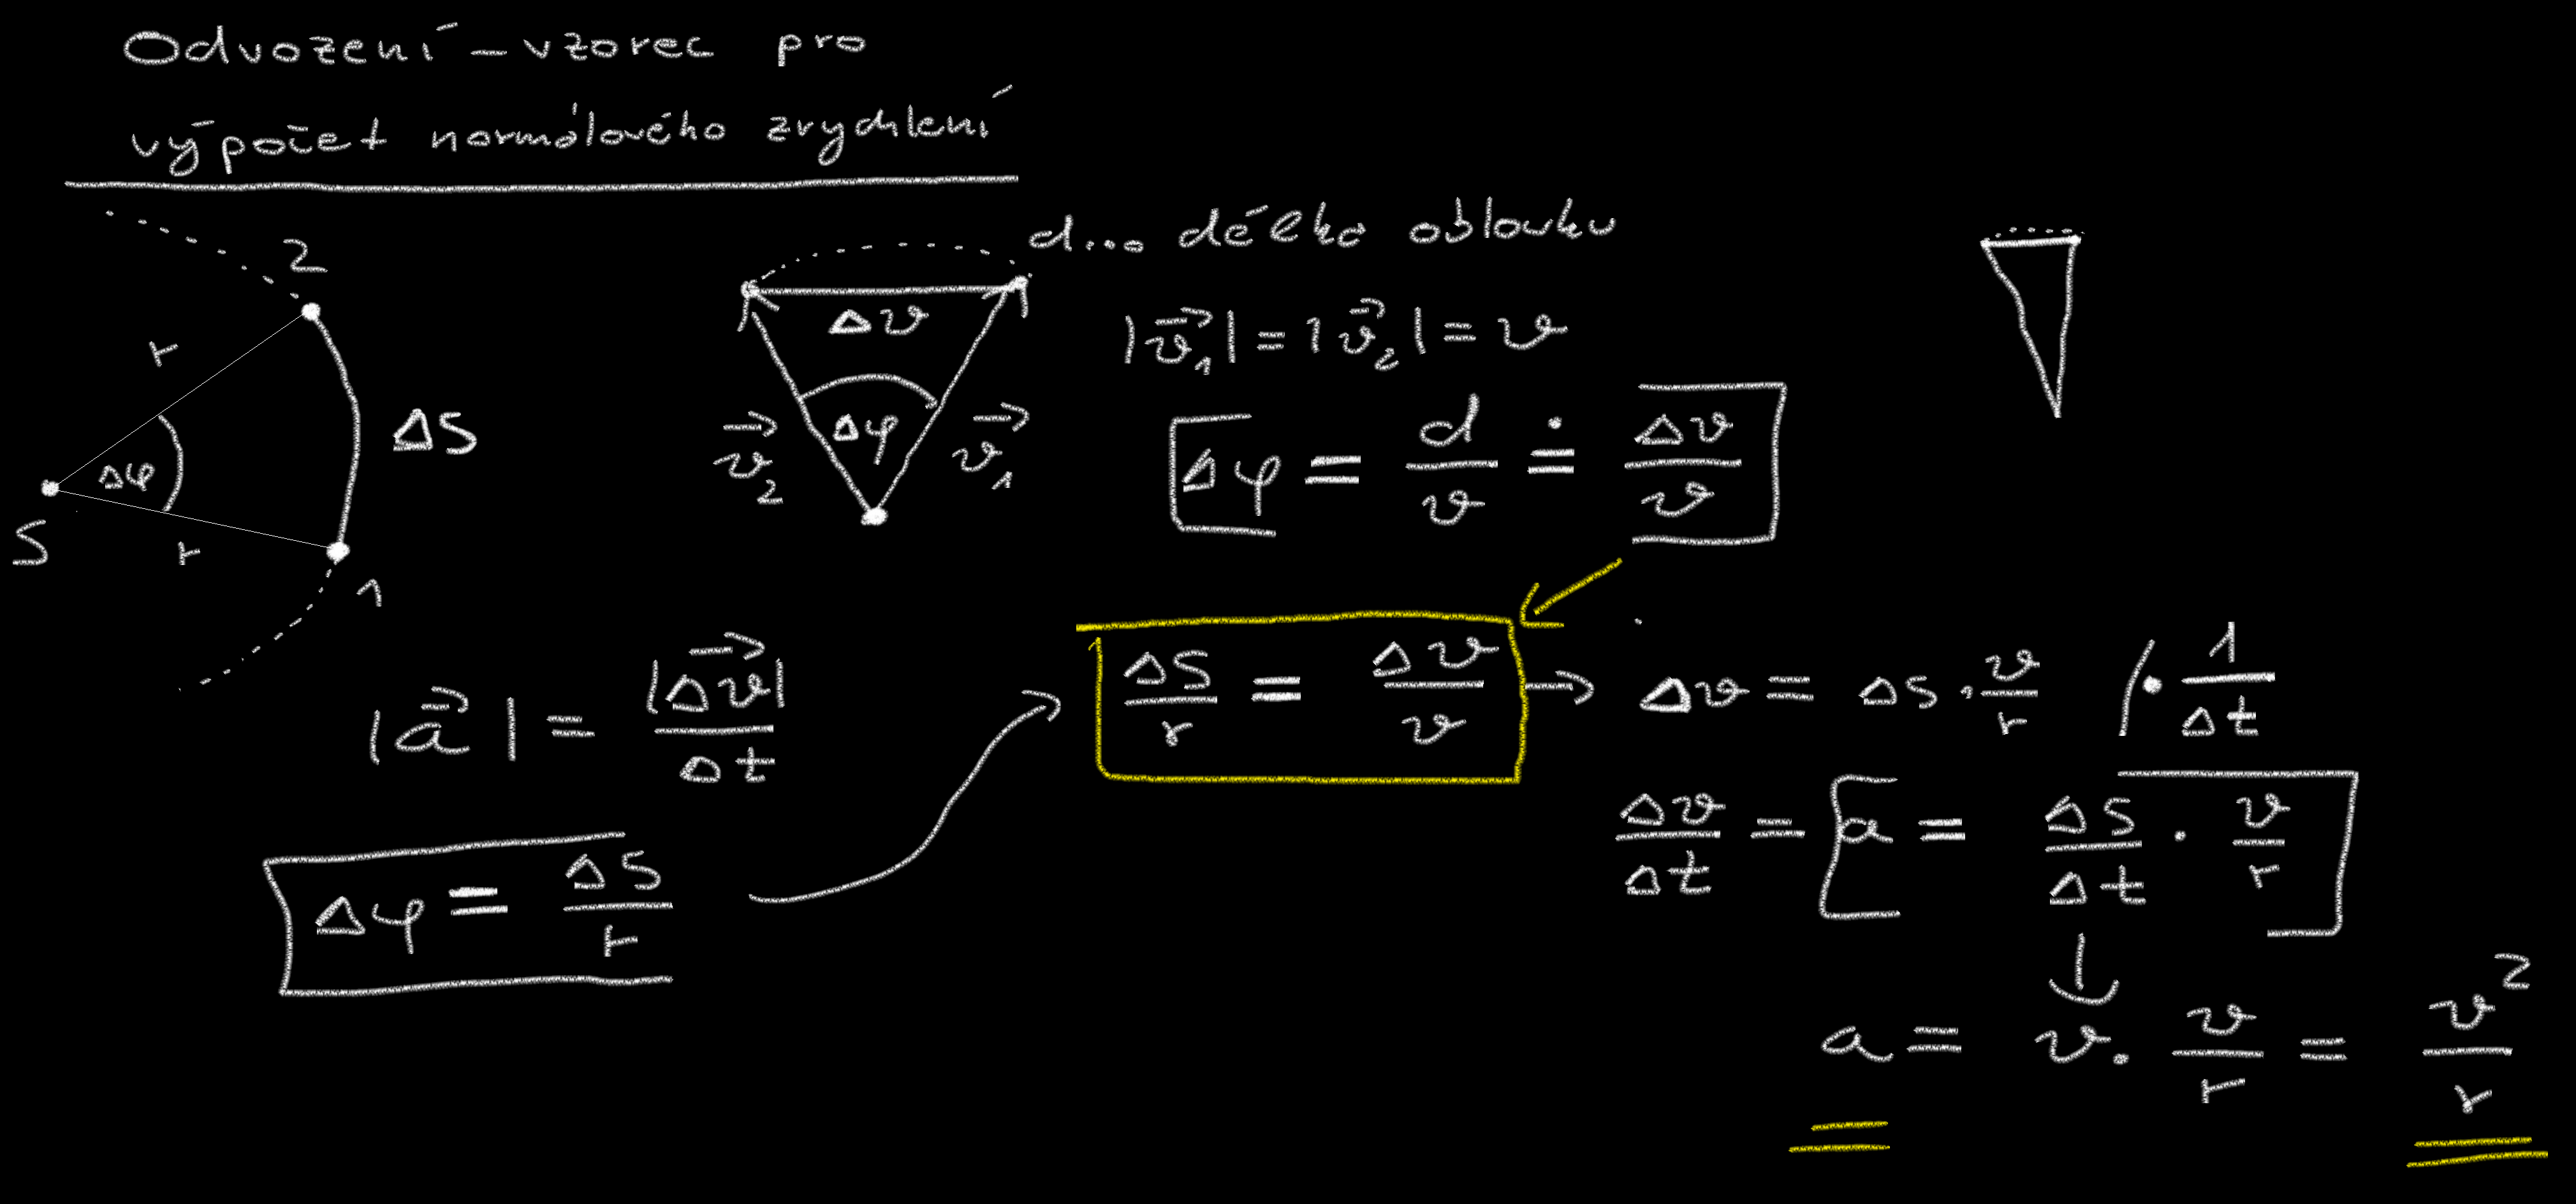 Odvození – vzorec pro
výpočet normálového zrychlení
2
r
Δφ
S
r
1
Δs
d... délka oblouku
Δv
Δφ
v⃗₂
v⃗₁
|v⃗₁| = |v⃗₂| = v
Δφ = d/v ≐ Δv/v
|a⃗| = |Δv⃗|/Δt
Δφ = Δs/r
Δs/r = Δv/v → Δv = Δs · v/r /· 1/Δt
Δv/Δt = a = Δs/Δt · v/r
a = v · v/r = v²/r